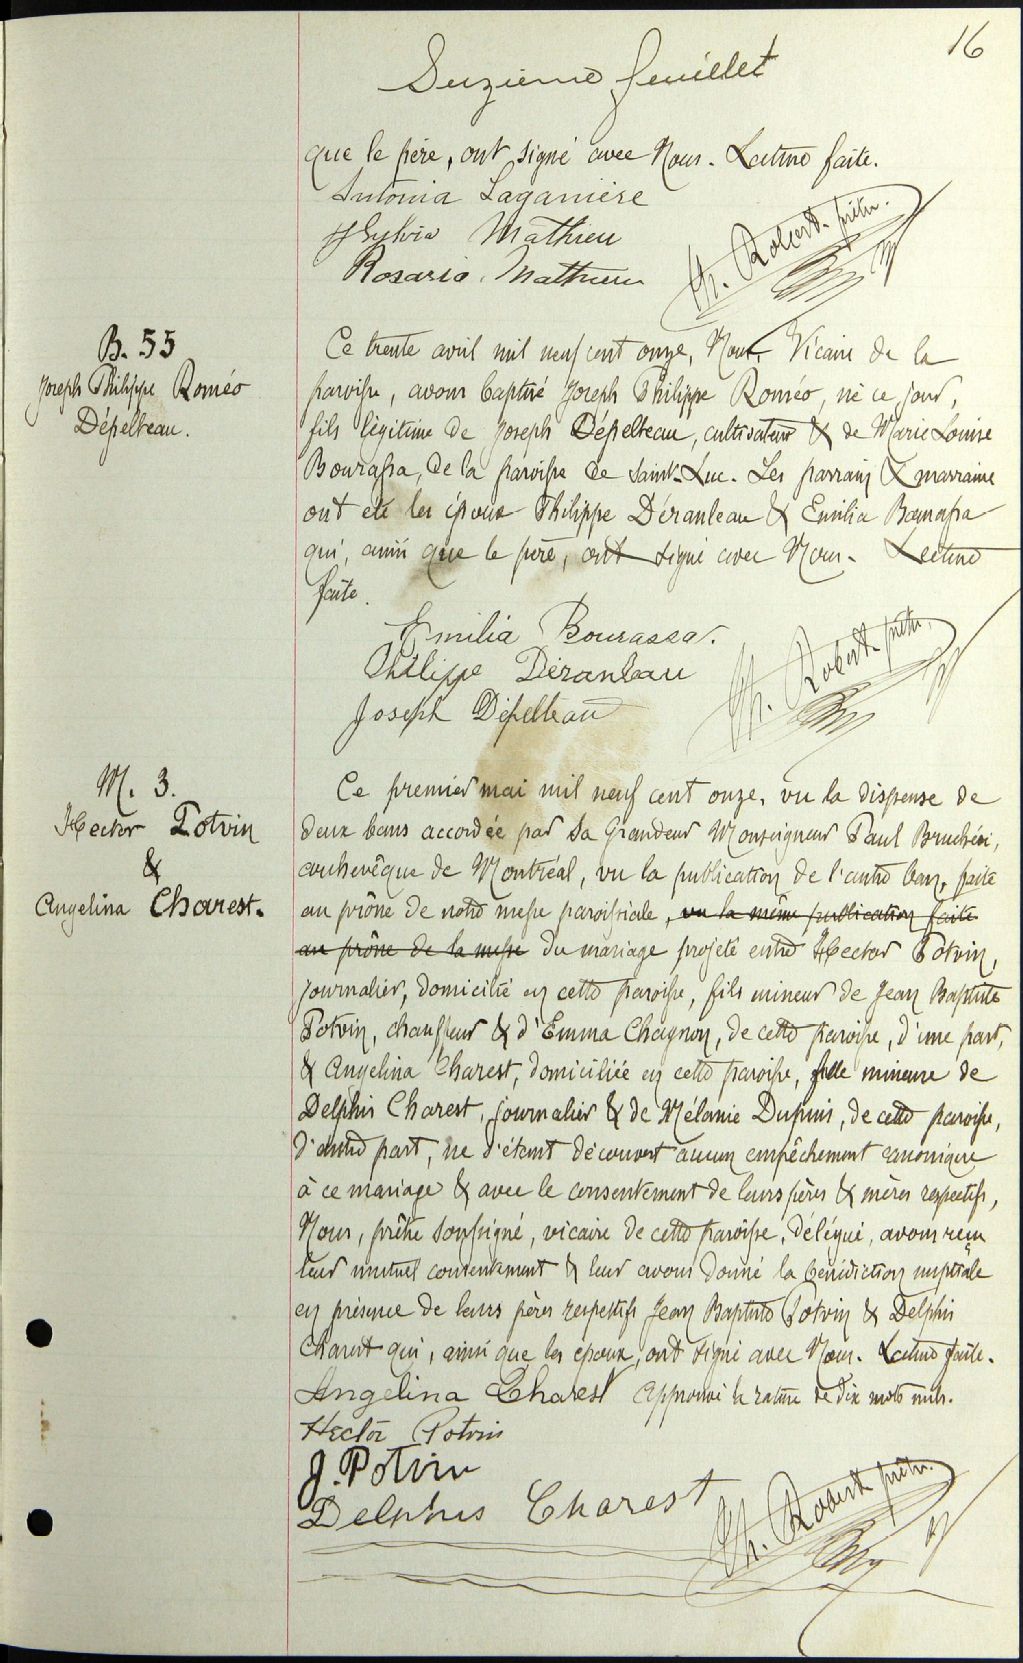 16
Seizième feuillet
que le père, ont signé avec Nous. Lecture faite.
Antonia Laganière
Sylvio Mathieu
Rosario Mathieu
Th. Robert. ptre.
B. 55
Joseph Philippe Roméo
Dépelteau.
Ce trente avril mil neuf cent onze, Nous, Vicaire de la
paroisse, avons baptisé Joseph Philippe Roméo, né ce jour,
fils légitime de Joseph Dépelteau, cultivateur & de Marie Louise
Bourassa, de la paroisse de Saint-Luc. Les parrain & marraine
ont été les époux Philippe Déranleau & Emilia Bourassa
qui, ainsi que le père, ont signé avec Nous. Lecture
faite.
Emilia Bourassa.
Philippe Déranleau
Joseph Dépelteau
Th. Robert. ptre.
M. 3.
Hector Potvin
&
Angelina Charest.
Ce premier mai mil neuf cent onze, vu la dispense de
deux bans accordée par Sa Grandeur Monseigneur Paul Bruchési,
archevêque de Montréal, vu la publication de l'autre ban, faite
au prône de notre messe paroissiale, vu la même publication faite
au prône de la messe du mariage projeté entre Hector Potvin,
journalier, domicilié en cette paroisse, fils mineur de Jean Baptiste
Potvin, chauffeur & d'Emma Chagnon, de cette paroisse, d'une part,
& Angelina Charest, domiciliée en cette paroisse, fille mineure de
Delphis Charest, journalier & de Mélanie Dupuis, de cette paroisse,
d'autre part, ne s'étant découvert aucun empêchement canonique
à ce mariage & avec le consentement de leurs pères & mères respectifs,
Nous, prêtre soussigné, vicaire de cette paroisse, délégué, avons reçu
leur mutuel consentement & leur avons donné la bénédiction nuptiale
en présence de leurs pères respectifs Jean Baptiste Potvin & Delphis
Charest qui, ainsi que les époux, ont signé avec Nous. Lecture faite.
Angelina Charest Approuvé la rature de dix mots nuls.
Hector Potvin
J. Potvin
Delphis Charest
Th. Robert ptre.